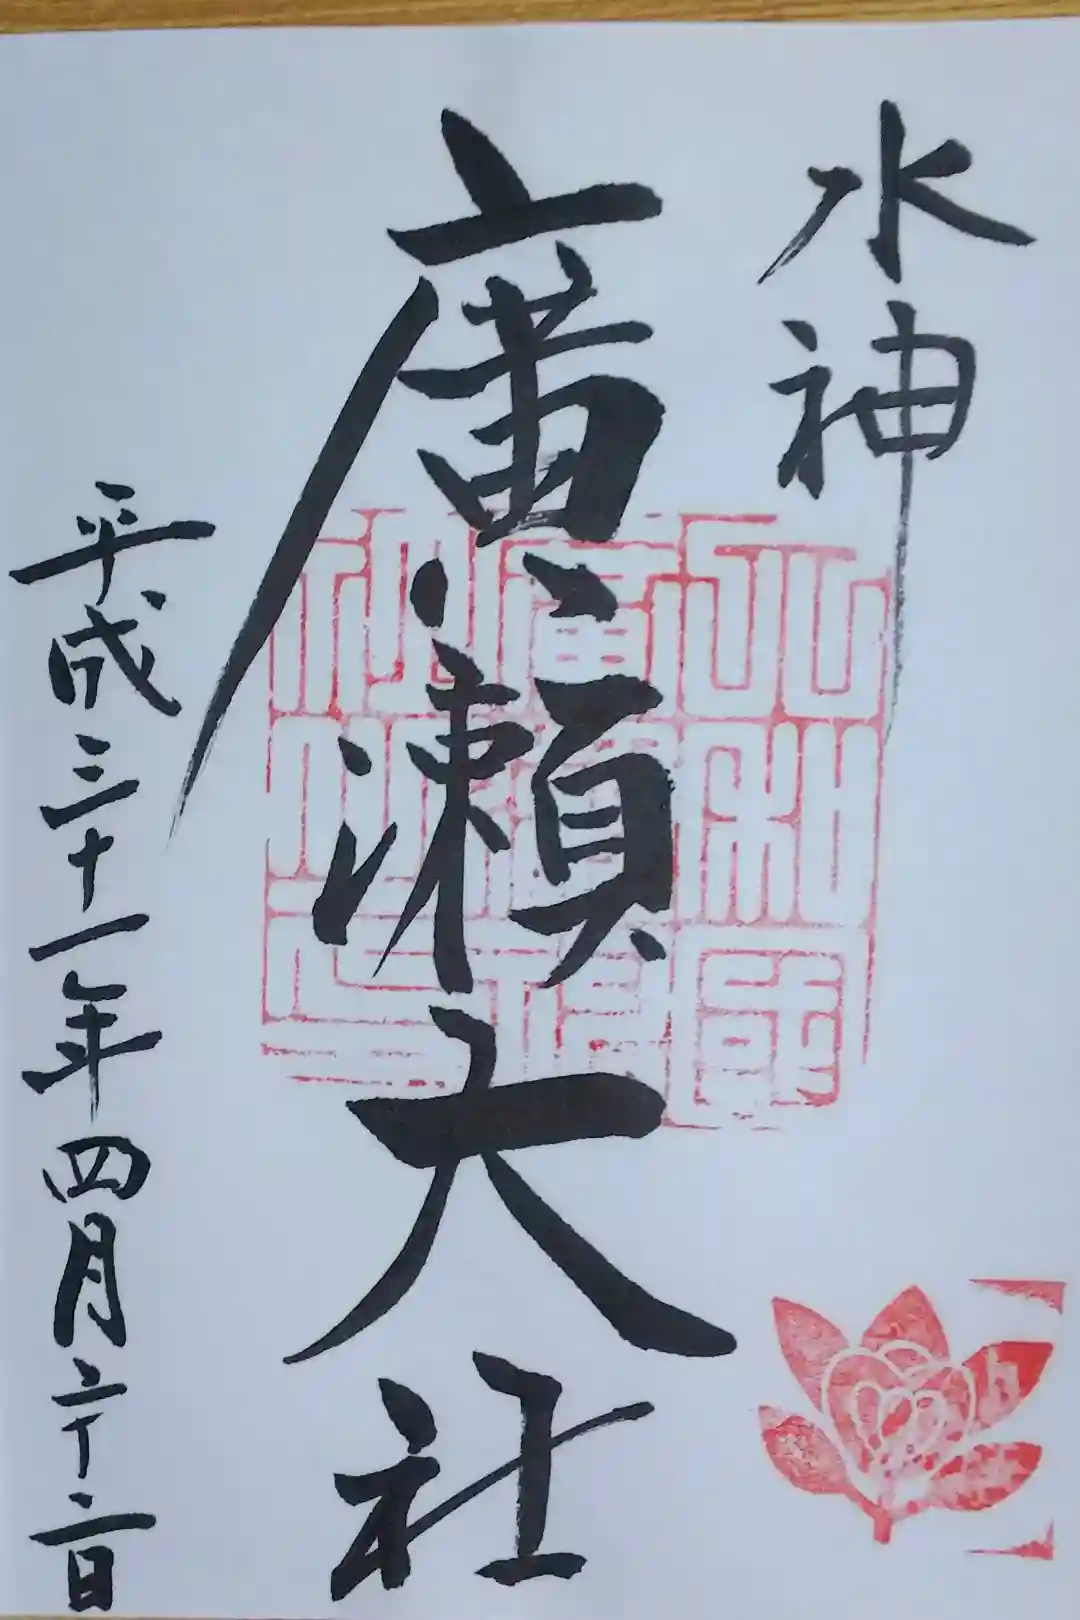 水神
廣瀬大社
平成三十一年四月二十二日